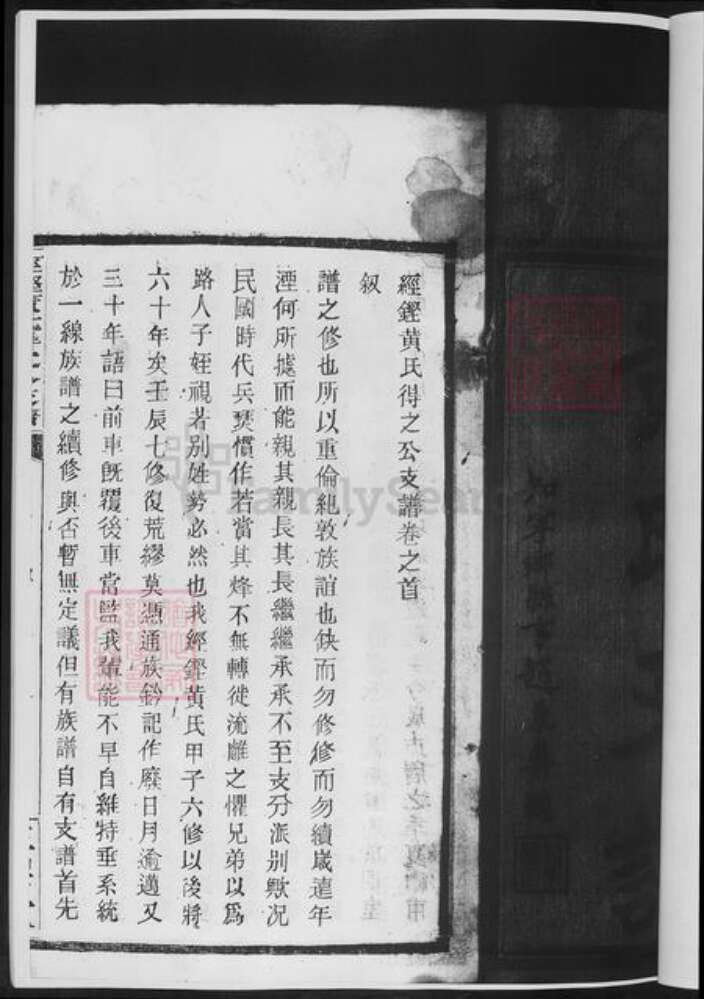 經鏗黃氏得之公支譜卷之首
叙
譜之修也所以重倫紀敦族誼也缺而勿修修而勿續歲遠年
湮何所據而能親其親長其長繼繼承承不至支分派別歟况
民國時代兵燹慣作若當其烽不無轉徙流離之懼兄弟以爲
路人子姪視若別姓勢必然也我經鏗黃氏甲子六修以後將
六十年矣壬辰七修復荒繆莫憑通族鈐記作廢日月逾邁又
三十年語曰前車既覆後車當鑑我輩能不早自維持垂系統
於一線族譜之續修與否暫無定議但有族譜自有支譜首先
FamilySearch